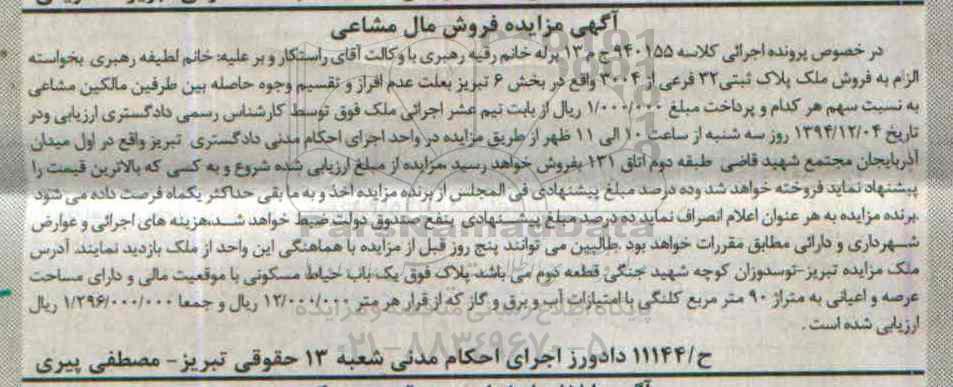 آگهی مزایده فروش مال مشاعی
در خصوص پرونده اجرائی کلاسه ۹۴۰۱۵۵ج ۱۳ برله خانم رقیه رهبری با وکالت آقای راستکار و بر علیه: خانم لطیفه رهبری بخواسته
الزام به فروش ملک پلاک ثبتی ۳۲ فرعی از ۳۰۰۴ واقع در بخش ۶ تبریز بعلت عدم افراز و تقسیم وجوه حاصله بین طرفین مالکین مشاعی
به نسبت سهم هر کدام و پرداخت مبلغ ۱/۰۰۰/۰۰۰ ریال از بابت نیم عشر اجرائی ملک فوق توسط کارشناس رسمی دادگستری ارزیابی ودر
تاریخ ۱۳۹۴/۱۲/۰۴ روز سه شنبه از ساعت ۱۰ الی ۱۱ ظهر از طریق مزایده در واحد اجرای احکام مدنی دادگستری تبریز واقع در اول میدان
آذربایجان مجتمع شهید قاضی طبقه دوم اتاق ۱۳۱ بفروش خواهد رسید .مزایده از مبلغ ارزیابی شده شروع و به کسی که بالاترین قیمت را
پیشنهاد نماید فروخته خواهد شد وده درصد مبلغ پیشنهادی فی المجلس از برنده مزایده اخذ و به ما بقی حداکثر یکماه فرصت داده می شود
.برنده مزایده به هر عنوان اعلام انصراف نماید ده درصد مبلغ پیشنهادی بنفع صندوق دولت ضبط خواهد شد.هزینه های اجرائی و عوارض
شهرداری و دارائی مطابق مقررات خواهد بود .طالبین می توانند پنج روز قبل از مزایده با هماهنگی این واحد از ملک بازدید نمایند. آدرس
ملک مزایده تبریز-توسدوزان کوچه شهید جنگی قطعه دوم می باشد پلاک فوق یک باب حیاط مسکونی با موقعیت مالی و دارای مساحت
عرصه و اعیانی به متراژ ۹۰ متر مربع کلنگی با امتیازات آب و برق و گاز که از قرار هر متر ۱۲/۰۰۰/۰۰۰ ریال و جمعا ۱/۲۹۶/۰۰۰/۰۰۰ ریال
ارزیابی شده است .
ح/۱۱۱۴۴ دادورز اجرای احکام مدنی شعبه ۱۳ حقوقی تبریز- مصطفی پیری
ParsNamadData
پایگاه اطلاع رسانی مناقصه و مزایده
۰۲۱-۸۸۳۴۹۶۷۰-۵